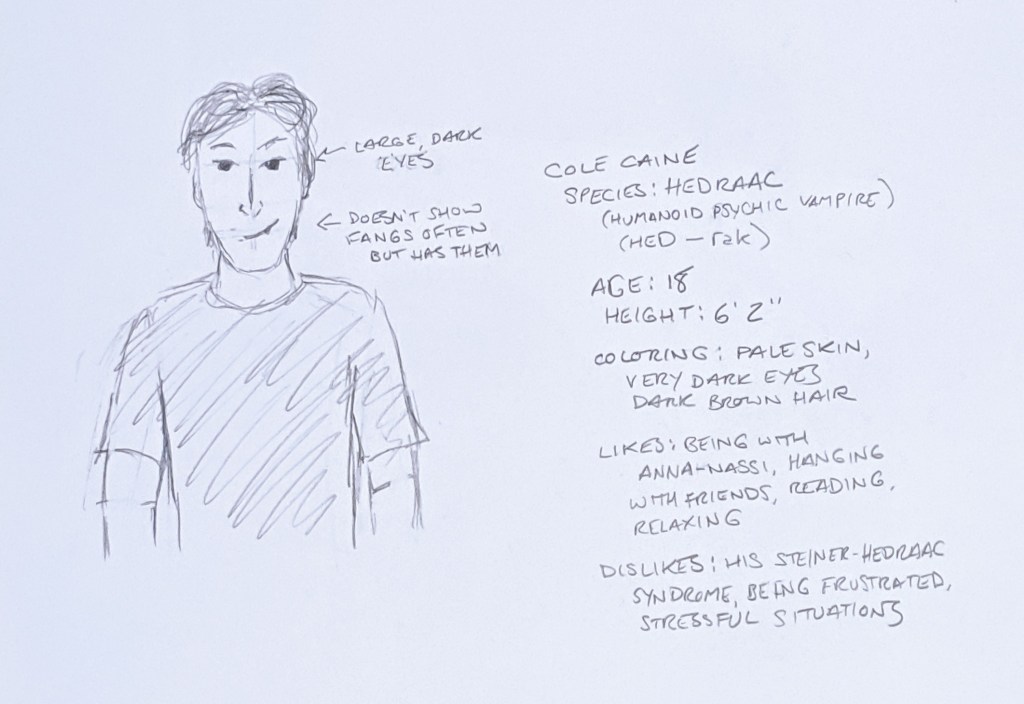 LARGE, DARK
EYES
DOESN'T SHOW
FANGS OFTEN
BUT HAS THEM
COLE CAINE
SPECIES: HEDRAAC
(HUMANOID PSYCHIC VAMPIRE)
(HED-rak)
AGE: 18
HEIGHT: 6'2"
COLORING: PALE SKIN,
VERY DARK EYES
DARK BROWN HAIR
LIKES: BEING WITH
ANNA-NASSI, HANGING
WITH FRIENDS, READING,
RELAXING
DISLIKES: HIS STEINER-HEDRAAC
SYNDROME, BEING FRUSTRATED,
STRESSFUL SITUATIONS